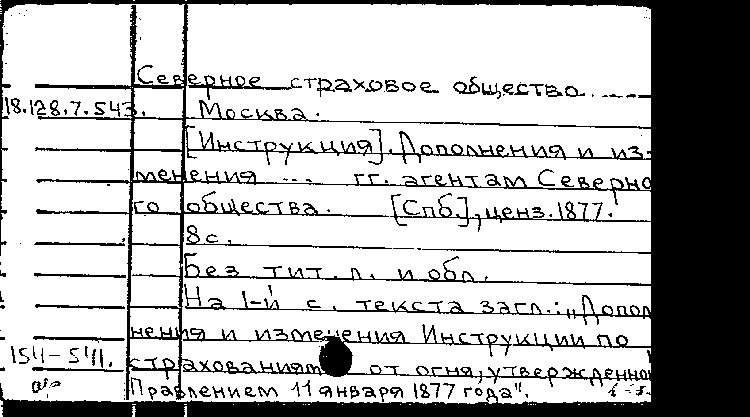 Северное страховое общество.....
18.128.7.543. Москва.
[Инструкция]. Дополнения и из-
менения ... гг. агентам Северно
го общества. [Спб.], ценз. 1877.
8 с.
Без тит. л. и обл.
На 1-й с. текста загл.: „Допол
нения и изменения Инструкции по
страхованиям от огня, утвержденно
Правлением 11 января 1877 года".